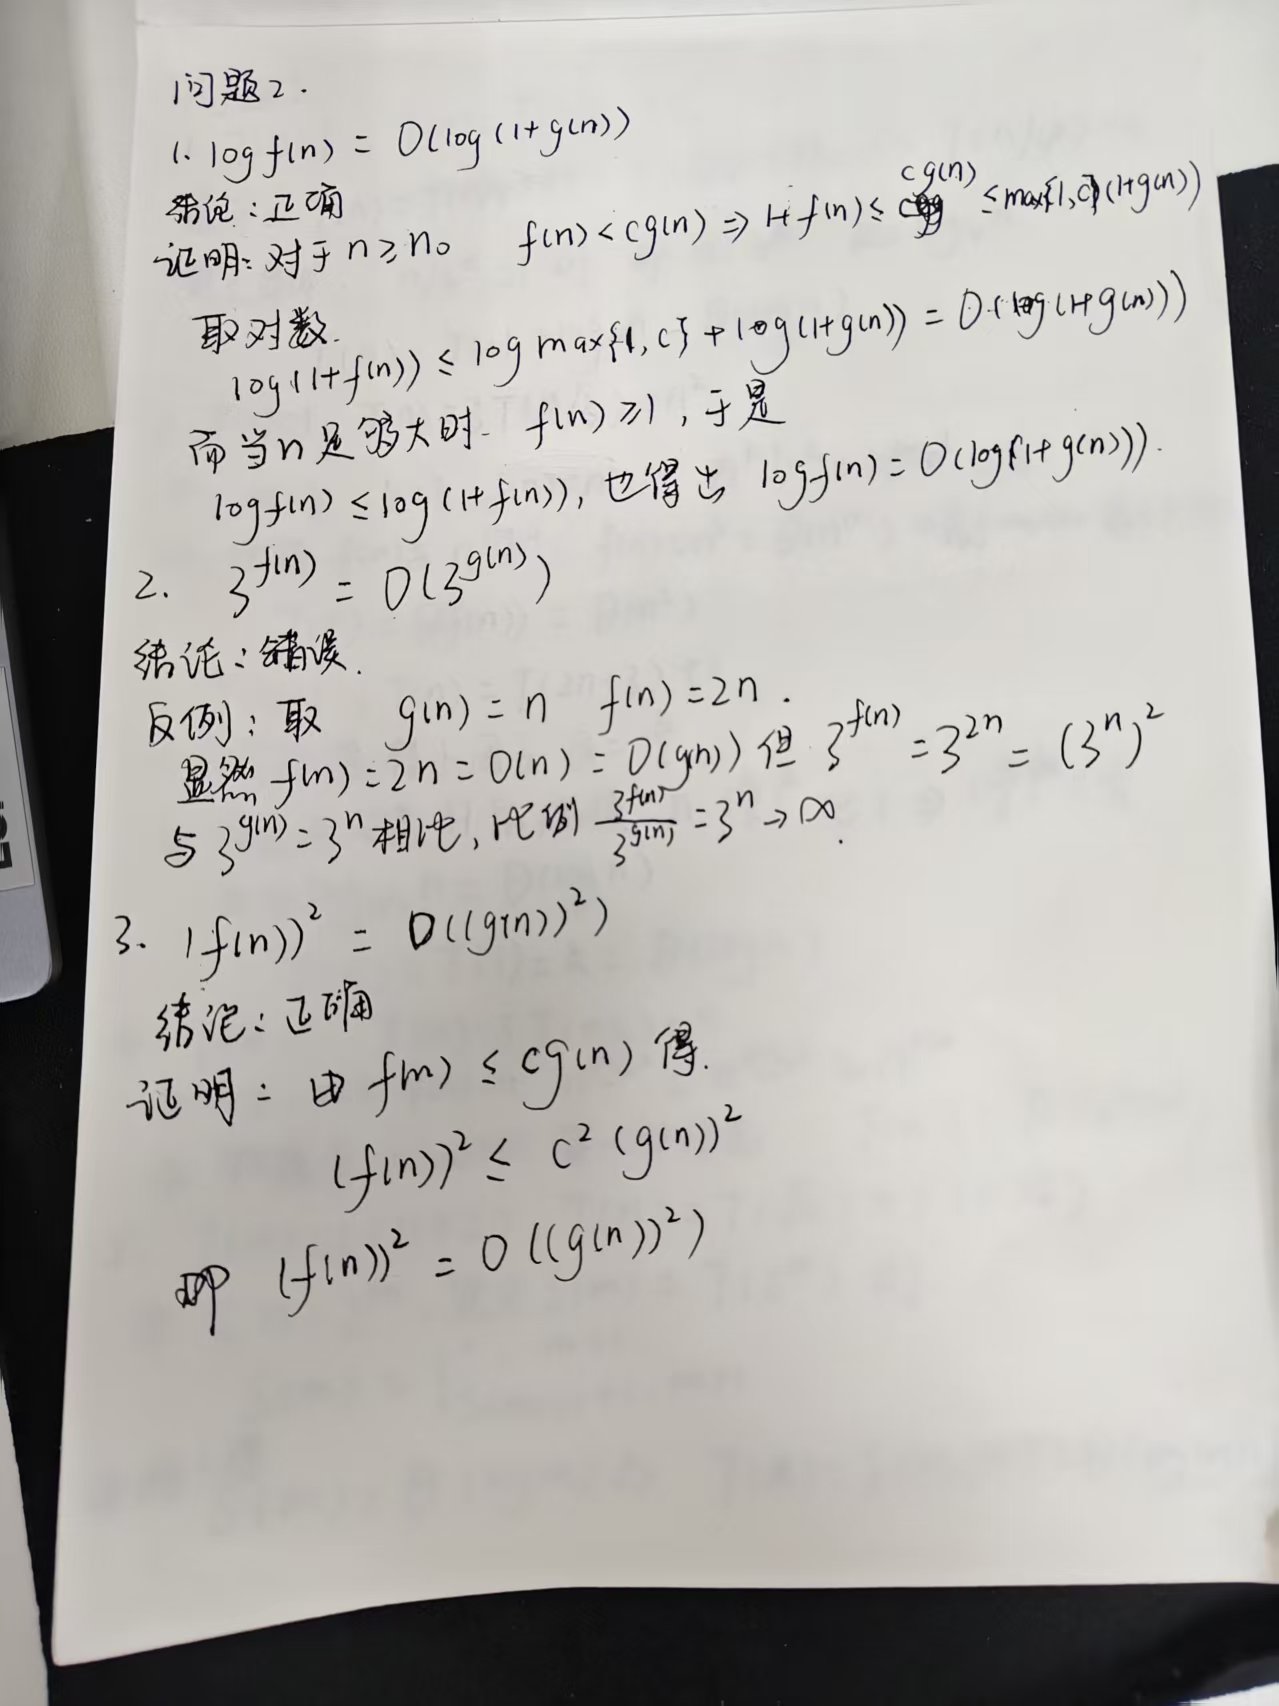 问题2.
1. log f(n) = O(log(1+g(n))
结论:正确
证明:对于n≥n₀ f(n)<cg(n)⇒1+f(n)≤ cg(n) ≤max{1,c}(1+g(n))
取对数.
log(1+f(n)) ≤ log max{1,c} + log(1+g(n)) = O(log(1+g(n)))
而当n足够大时. f(n)≥1,于是
logf(n) ≤log(1+f(n)),也得出 logf(n)=O(log(1+g(n))).
2. 3^{f(n)} = O(3^{g(n)})
结论:错误.
反例:取 g(n)=n f(n)=2n.
显然 f(n)=2n=O(n)=O(g(n)) 但 3^{f(n)}=3^{2n}=(3^n)²
与3^{g(n)}=3^n相比,比例 3^{f(n)}/3^{g(n)}=3^n→∞.
3. (f(n))² = O((g(n))²)
结论:正确
证明:由 f(n) ≤ cg(n) 得.
(f(n))² ≤ c² (g(n))²
即 (f(n))² = O((g(n))²)